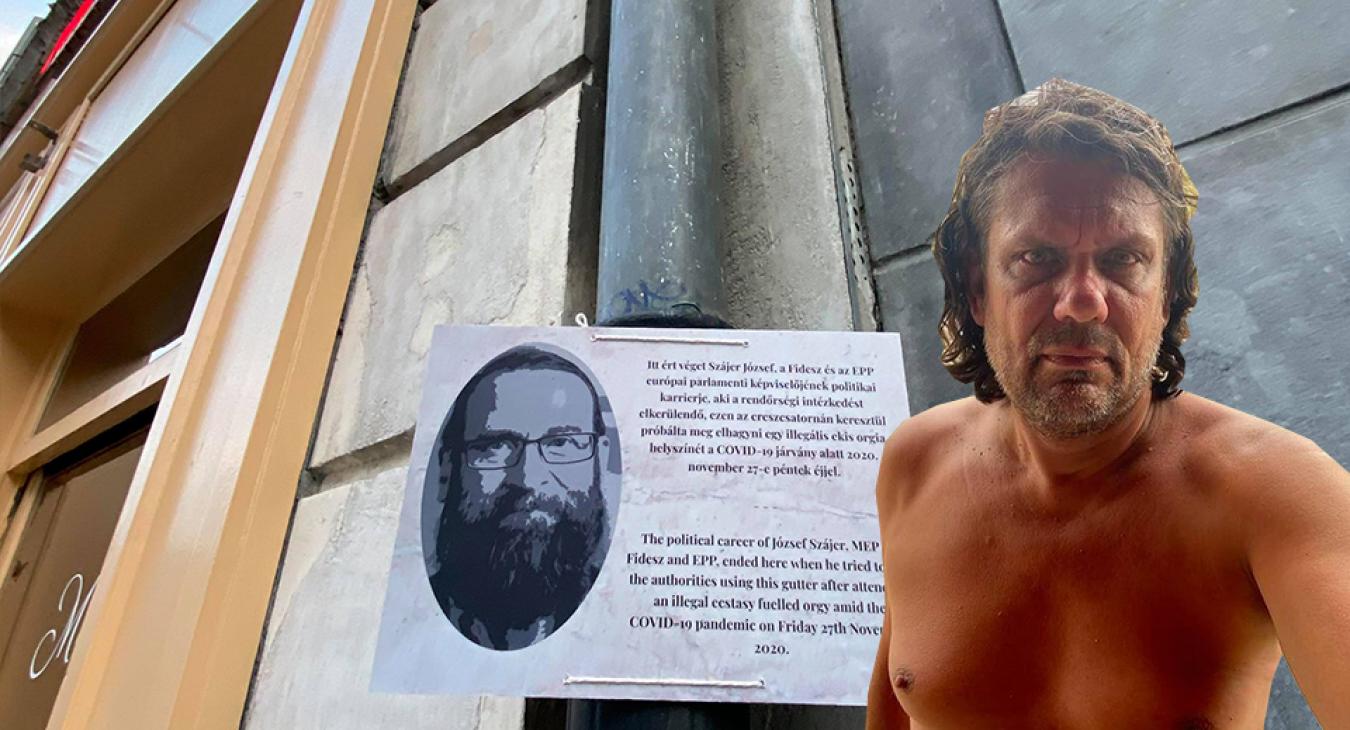 Itt ért véget Szájer József, a Fidesz és az EPP
európai parlamenti képviselőjének politikai
karrierje, aki a rendőrségi intézkedést
elkerülendő, ezen az ereszcsatornán keresztül
próbálta meg elhagyni egy illegális ekis orgia
helyszínét a COVID-19 járvány alatt 2020.
november 27-e péntek éjjel.
The political career of József Szájer, MEP
Fidesz and EPP, ended here when he tried to
the authorities using this gutter after
an illegal ecstasy fuelled orgy amid the
COVID-19 pandemic on Friday 27th
2020.
M